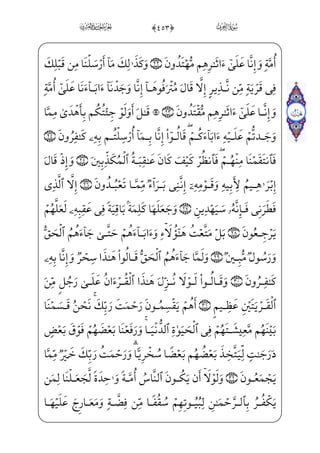 ﴿٤٥٣﴾
أُمَّةٍ وَإِنَّا عَلَىٰٓ ءَاثَٰرِهِم مُّهْتَدُونَ وَكَذَٰلِكَ مَآ أَرْسَلْنَا مِن قَبْلِكَ
فِى قَرْيَةٍ مِّن نَّذِيرٍ إِلَّا قَالَ مُتْرَفُوهَآ إِنَّا وَجَدْنَآ ءَابَآءَنَا عَلَىٰٓ أُمَّةٍ
وَإِنَّا عَلَىٰٓ ءَاثَٰرِهِم مُّقْتَدُونَ ۞ قَٰلَ أَوَلَوْ جِئْتُكُم بِأَهْدَىٰ مِمَّا
وَجَدتُّمْ عَلَيْهِ ءَابَآءَكُمْ ۖ قَالُوٓا۟ إِنَّا بِمَآ أُرْسِلْتُم بِهِۦ كَٰفِرُونَ
فَٱنتَقَمْنَا مِنْهُمْ ۖ فَٱنظُرْ كَيْفَ كَانَ عَٰقِبَةُ ٱلْمُكَذِّبِينَ وَإِذْ قَالَ
إِبْرَٰهِيمُ لِأَبِيهِ وَقَوْمِهِۦٓ إِنَّنِى بَرَآءٌ مِّمَّا تَعْبُدُونَ إِلَّا ٱلَّذِى
فَطَرَنِى فَإِنَّهُۥ سَيَهْدِينِ وَجَعَلَهَا كَلِمَةًۢ بَاقِيَةً فِى عَقِبِهِۦ لَعَلَّهُمْ
يَرْجِعُونَ بَلْ مَتَّعْتُ هَٰٓؤُلَآءِ وَءَابَآءَهُمْ حَتَّىٰ جَآءَهُمُ ٱلْحَقُّ
وَرَسُولٌ مُّبِينٌ وَلَمَّا جَآءَهُمُ ٱلْحَقُّ قَالُوا۟ هَٰذَا سِحْرٌ وَإِنَّا بِهِۦ
كَٰفِرُونَ وَقَالُوا۟ لَوْلَا نُزِّلَ هَٰذَا ٱلْقُرْءَانُ عَلَىٰ رَجُلٍ مِّنَ
ٱلْقَرْيَتَيْنِ عَظِيمٍ أَهُمْ يَقْسِمُونَ رَحْمَتَ رَبِّكَ ۚ نَحْنُ قَسَمْنَا
بَيْنَهُم مَّعِيشَتَهُمْ فِى ٱلْحَيَوٰةِ ٱلدُّنْيَا ۚ وَرَفَعْنَا بَعْضَهُمْ فَوْقَ بَعْضٍ
دَرَجَٰتٍ لِّيَتَّخِذَ بَعْضُهُم بَعْضًا سُخْرِيًّا ۗ وَرَحْمَتُ رَبِّكَ خَيْرٌ مِّمَّا
يَجْمَعُونَ وَلَوْلَآ أَن يَكُونَ ٱلنَّاسُ أُمَّةً وَٰحِدَةً لَّجَعَلْنَا لِمَن
يَكْفُرُ بِٱلرَّحْمَٰنِ لِبُيُوتِهِمْ سُقُفًا مِّن فِضَّةٍ وَمَعَارِجَ عَلَيْهَا